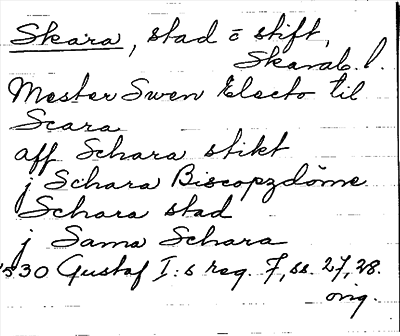 Skara, stad o stift,
Skarab. l.
Mester Swen Electo til
Scara
aff Schara stikt
j Schara Biscopzdöme
Schara stad
j Sama Schara
1530 Gustaf I:s reg. 7, ss. 27, 28.
orig.